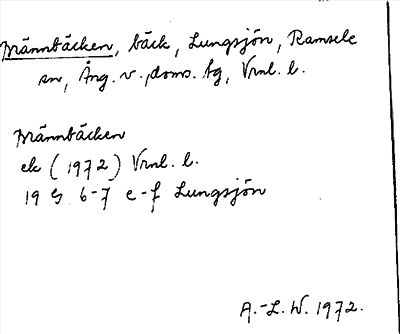 Brännbäcken, bäck, Lungsjön, Ramsele
sn, Ång. v. doms. tg, Vrnl. l.
Brännbäcken
ek (1972) Vrnl. l.
19 G 6-7 e-f Lungsjön
A.-L. W. 1972.